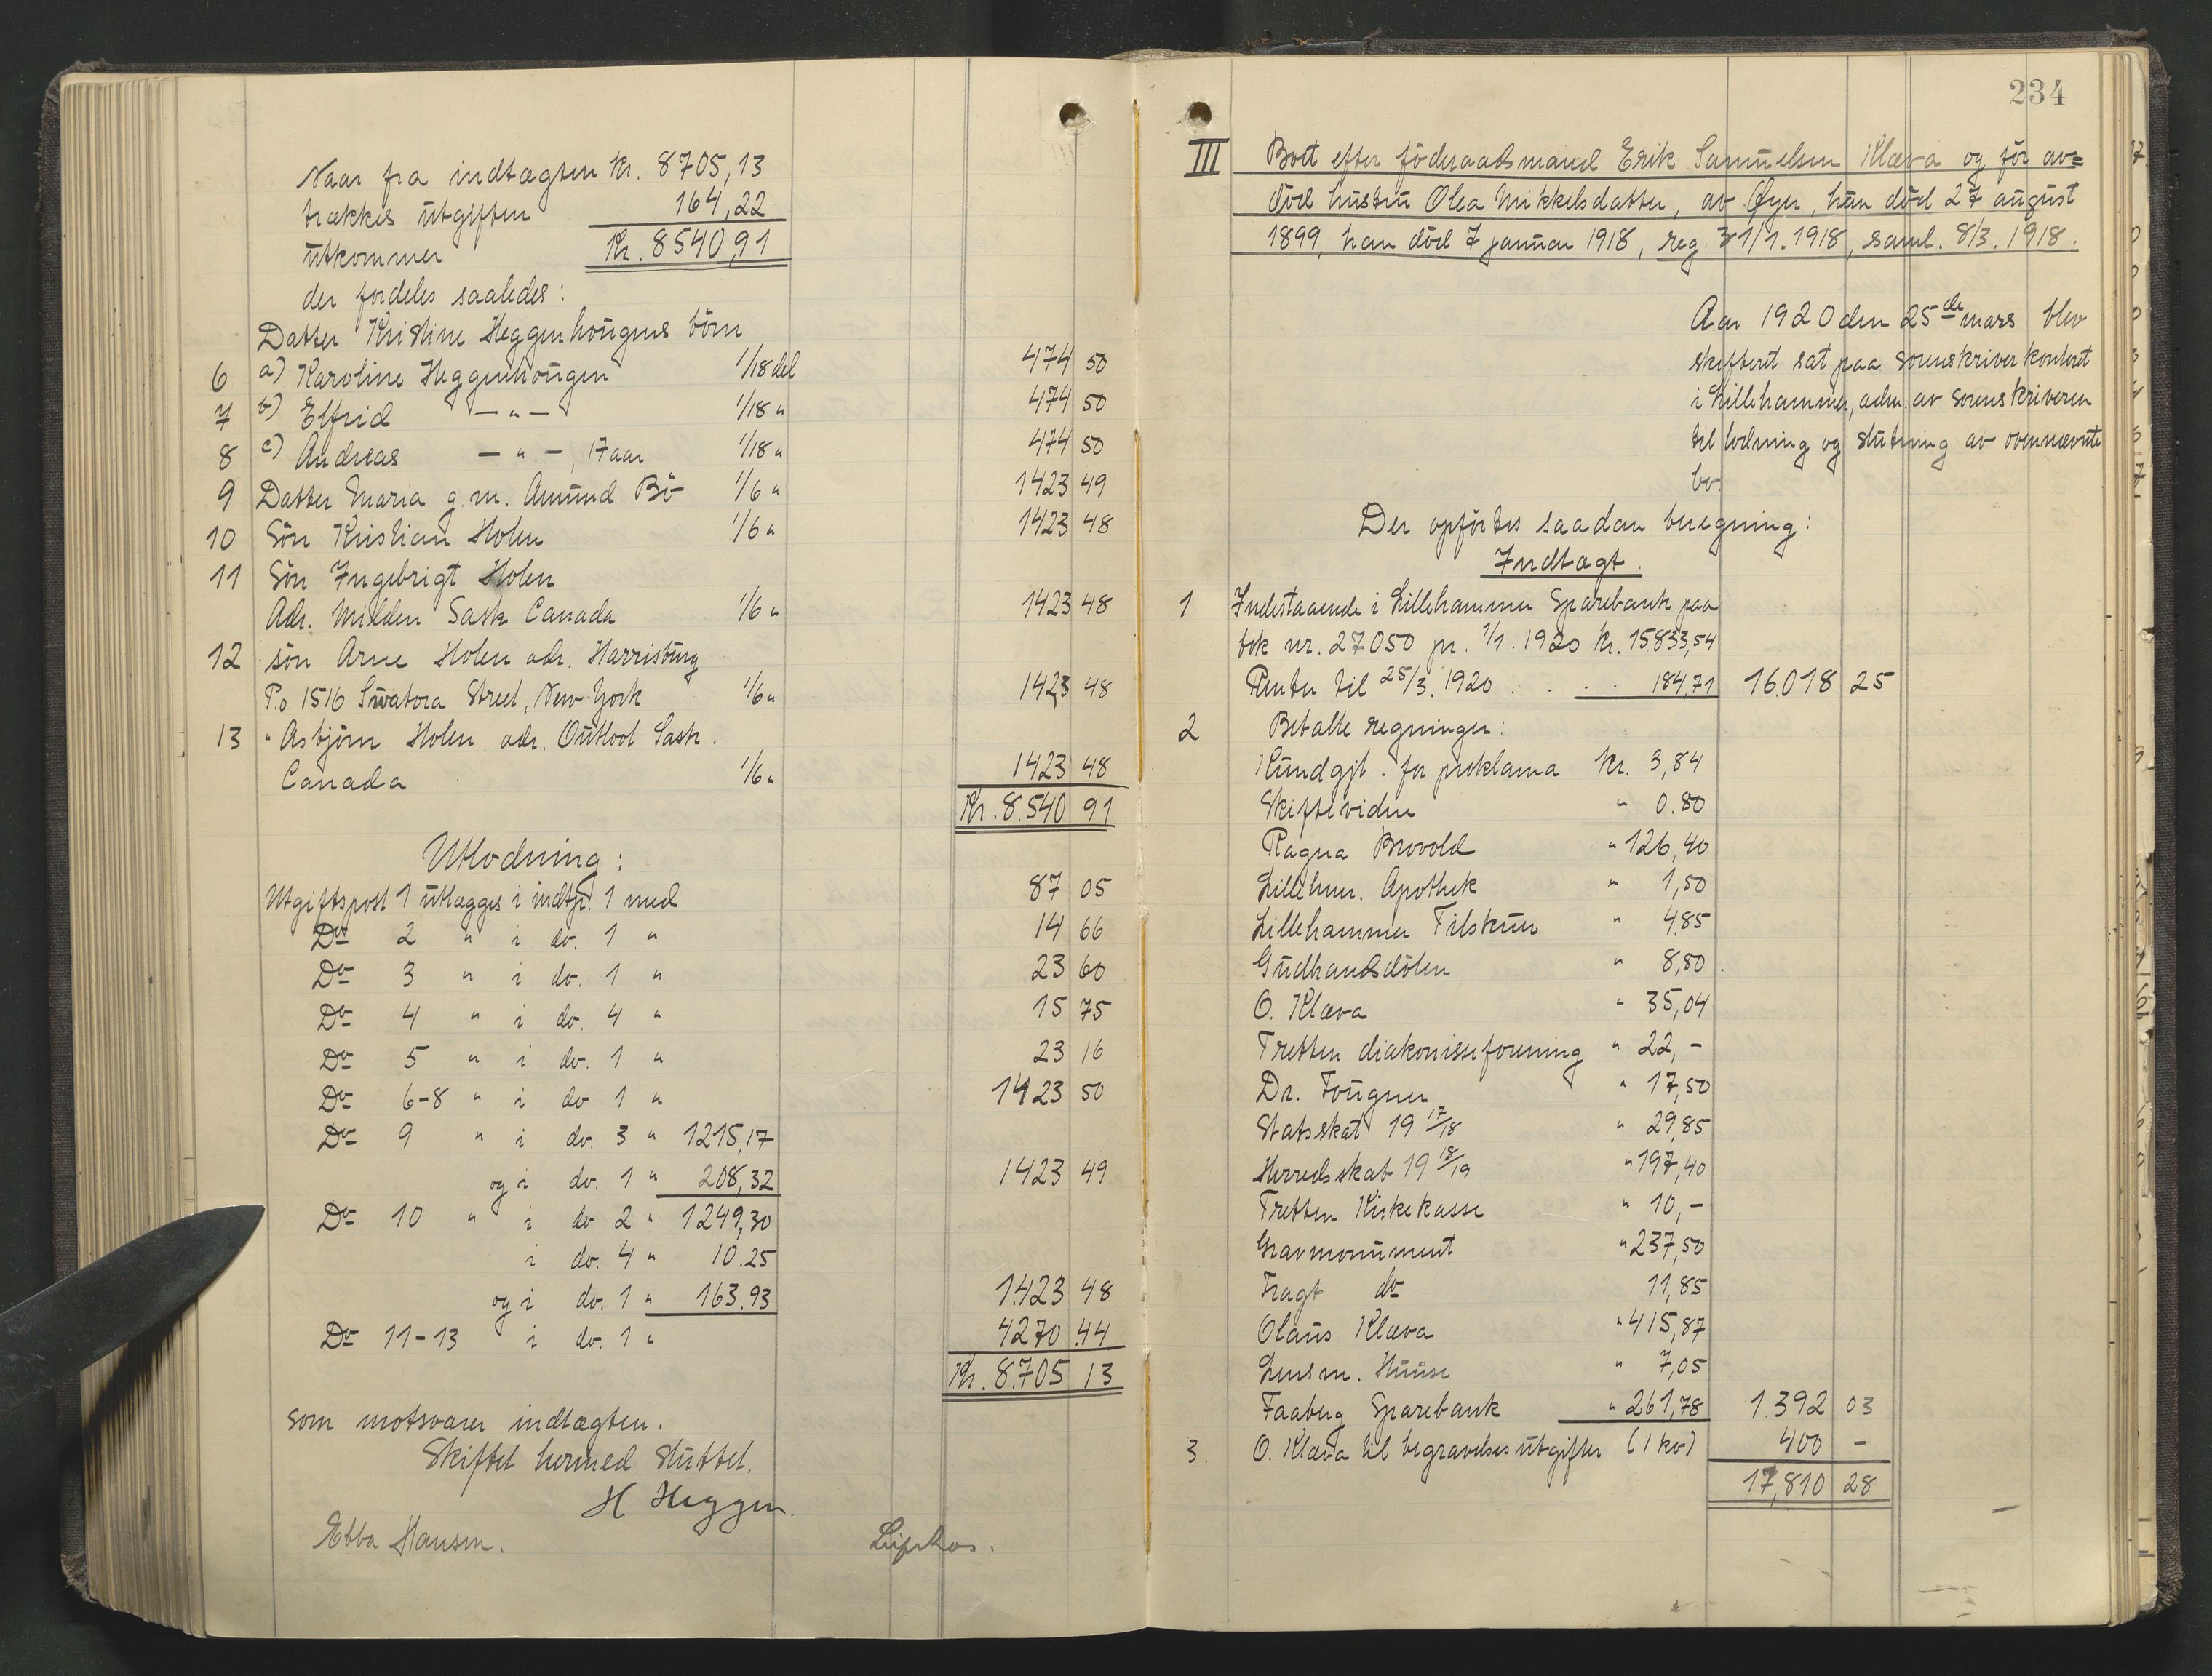 Naar fra indtægten kr. 8705,13
trækkes utgiften 164,22
utkommer Kr. 8540,91
der fordeles saaledes:
Datter Kristine Heggenhougens börn
6 a) Karoline Heggenhougen 1/18 del 474 50
7 b) Elfrid — " — 1/18 " 474 50
8 c) Andreas — " —, 17 aar 1/18 " 474 50
9 Datter Maria g.m. Amund Bö 1/6 " 1423 49
10 Sön Kristian Holen 1/6 " 1423 48
11 Sön Ingebrigt Holen
Adr. Milden Sask Canada 1/6 " 1423 48
12 sön Arne Holen adr. Harrisburg
P.o 1516 Swatora Street, New-York 1/6 " 1423 48
13 " Asbjörn Holen adr. Outloot Sask.
Canada 1/6 " 1423 48
Kr. 8.540 91
Utlodning:
Utgiftspost 1 utlægges i indtp. 1 med 87 05
Do 2 " i do. 1 " 14 66
Do 3 " i do. 1 " 23 60
Do 4 " i do. 4 " 15 75
Do 5 " i do. 1 " 23 16
Do 6-8 " i do 1 " 1423 50
Do 9 " i do. 3 " 1215,17
og i do. 1 " 208,32 1423 49
Do 10 " i do 2 " 1249,30
i do. 4 " 10.25
og i do. 1 " 163.93 1.423 48
Do 11-13 i do. 1 " 4270 .44
Kr. 8.705 13
som motsvarer indtægten.
Skiftet hermed sluttet.
H Heggen.
Ebba Hansen.
234
III Boet efter föderaadsmand Erik Samuelsen Klæva og för av=
död hustru Olea Mikkelsdatter, av Öyer, hun död 27 august
1899, han död 7 januar 1918, reg. 31/1. 1918, saml. 8/3. 1918.
Aar 1920 den 25de mars blev
skifteret sat paa sorenskriverkontoret
i Lillehammer, adm. av sorenskriveren
til lodning og slutning av ovennævnte
bo.
Der opförtes saadan beregning:
Indtægt.
1 Indestaaende i Lillehammer Sparebank paa
bok nr. 27050 pr. 1/1. 1920 kr. 15833,54
Renter til 25/3. 1920 . . . . 184,71 16.018 25
2 Betalte regninger:
Kundgjt. for proklama kr. 3,84
Skiftevidne " 0.80
Ragna Brovold " 126,40
Lillehmr. Apothek " 1,50
Lillehammer Tilskuer " 4,85
Gudbrandsdölen " 8,80
O. Klæva " 35,04
Tretten diakonisseforening " 22,-
Dr. Fougner " 17,50
Statsskat 19 17/18 " 29,85
Herredsskat 19 18/19 " 197,40
Tretten Kirkekasse " 10,-
Gravmonument " 237,50
Fragt do 11,85
Olaus Klæva " 415,87
Lensm. Huuse " 7,05
Faaberg Sparebank " 261,78 1.392 03
3. O. Klæva til begravelsesutgifter (1 ko) 400 -
17,810 28